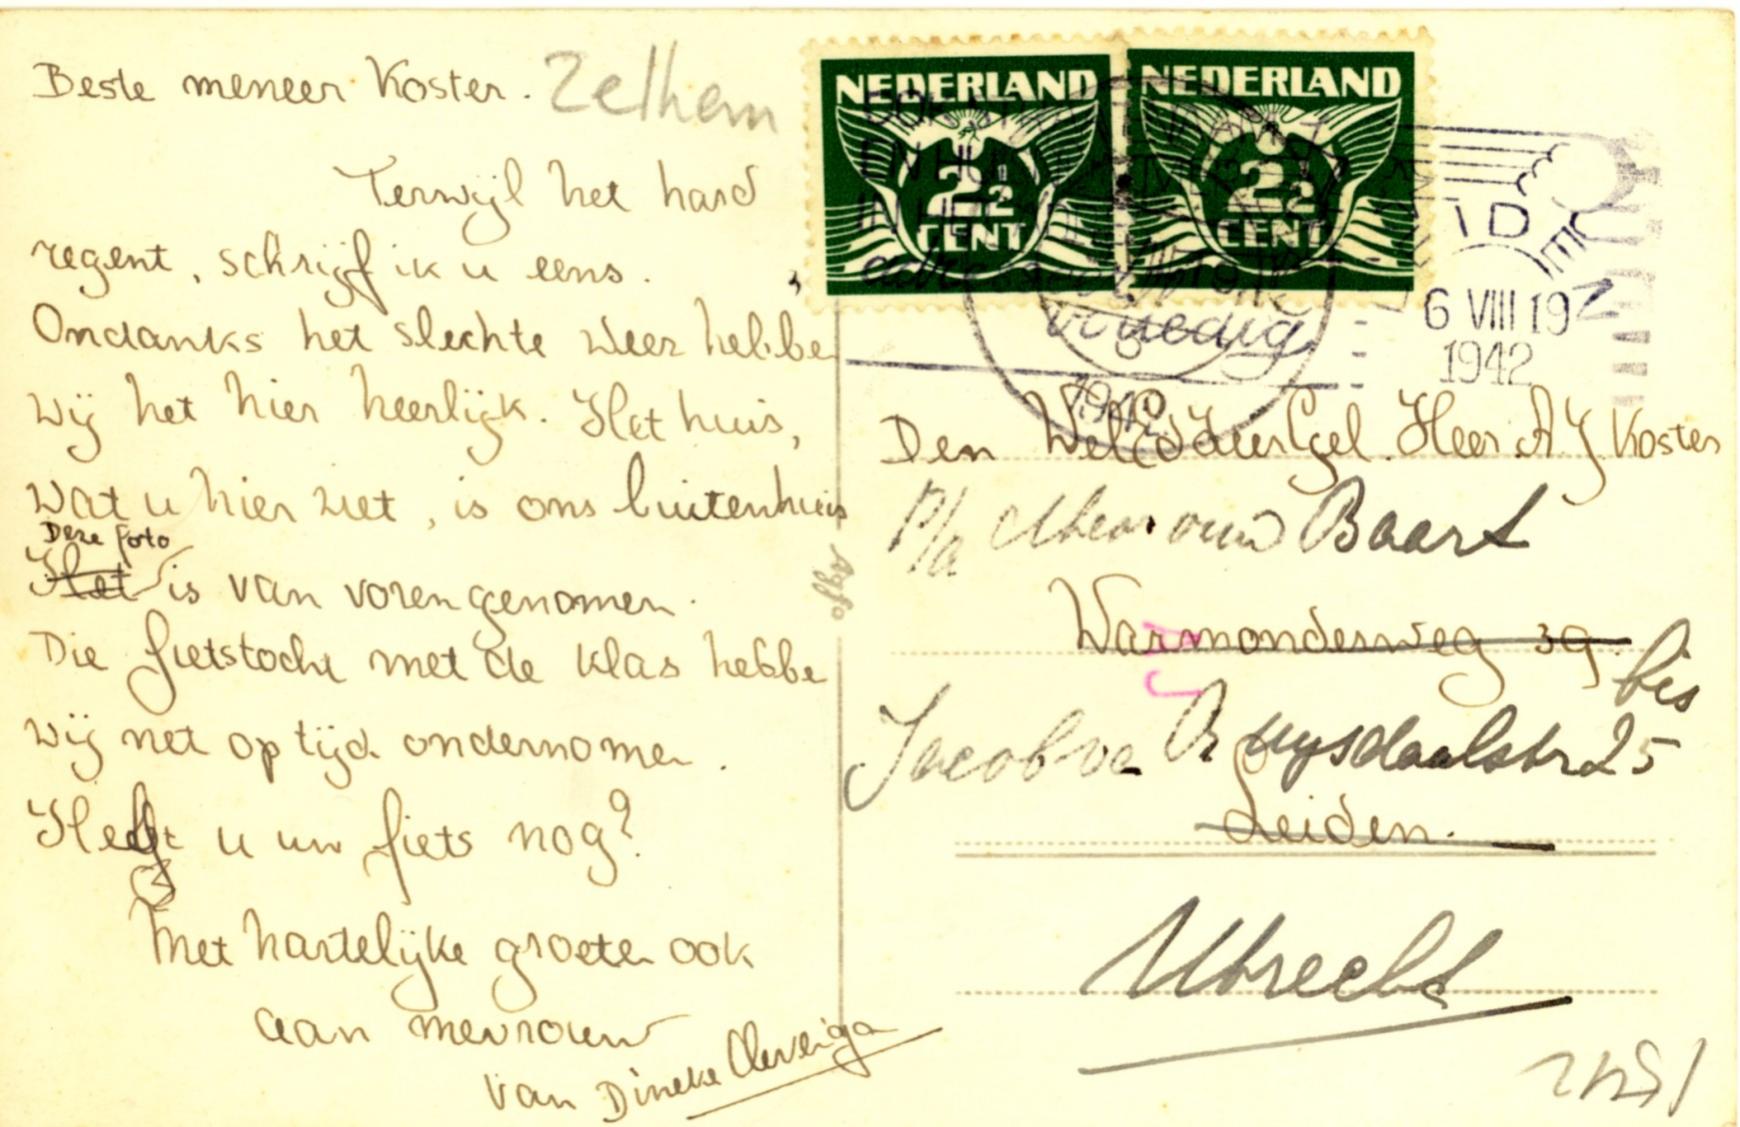 Beste meneer Koster. Zelhem
Terwijl het hard
regent, schrijf ik u eens.
Ondanks het slechte weer hebbe
wij het hier heerlijk. Het huis,
wat u hier ziet, is ons buitenhuis
Deze foto
Het is van voren genomen.
Die fietstocht met de klas hebbe
wij net op tijd ondernomen.
Heeft u uw fiets nog?
Met hartelijke groeten ook
aan mevrouw
van Dineke
Agfa
NEDERLAND
2½
CENT
NEDERLAND
2½
CENT
EN HU
IN HU
adres
volledig
1942
LEIDEN
6 VIII 19
1942
Den WelEd Heer Heer A J Koster
P/a Mevrouw Baart
Warmonderweg 39
bis
Jacob va Ruysdaalstr 25
Leiden.
Utrecht
1542